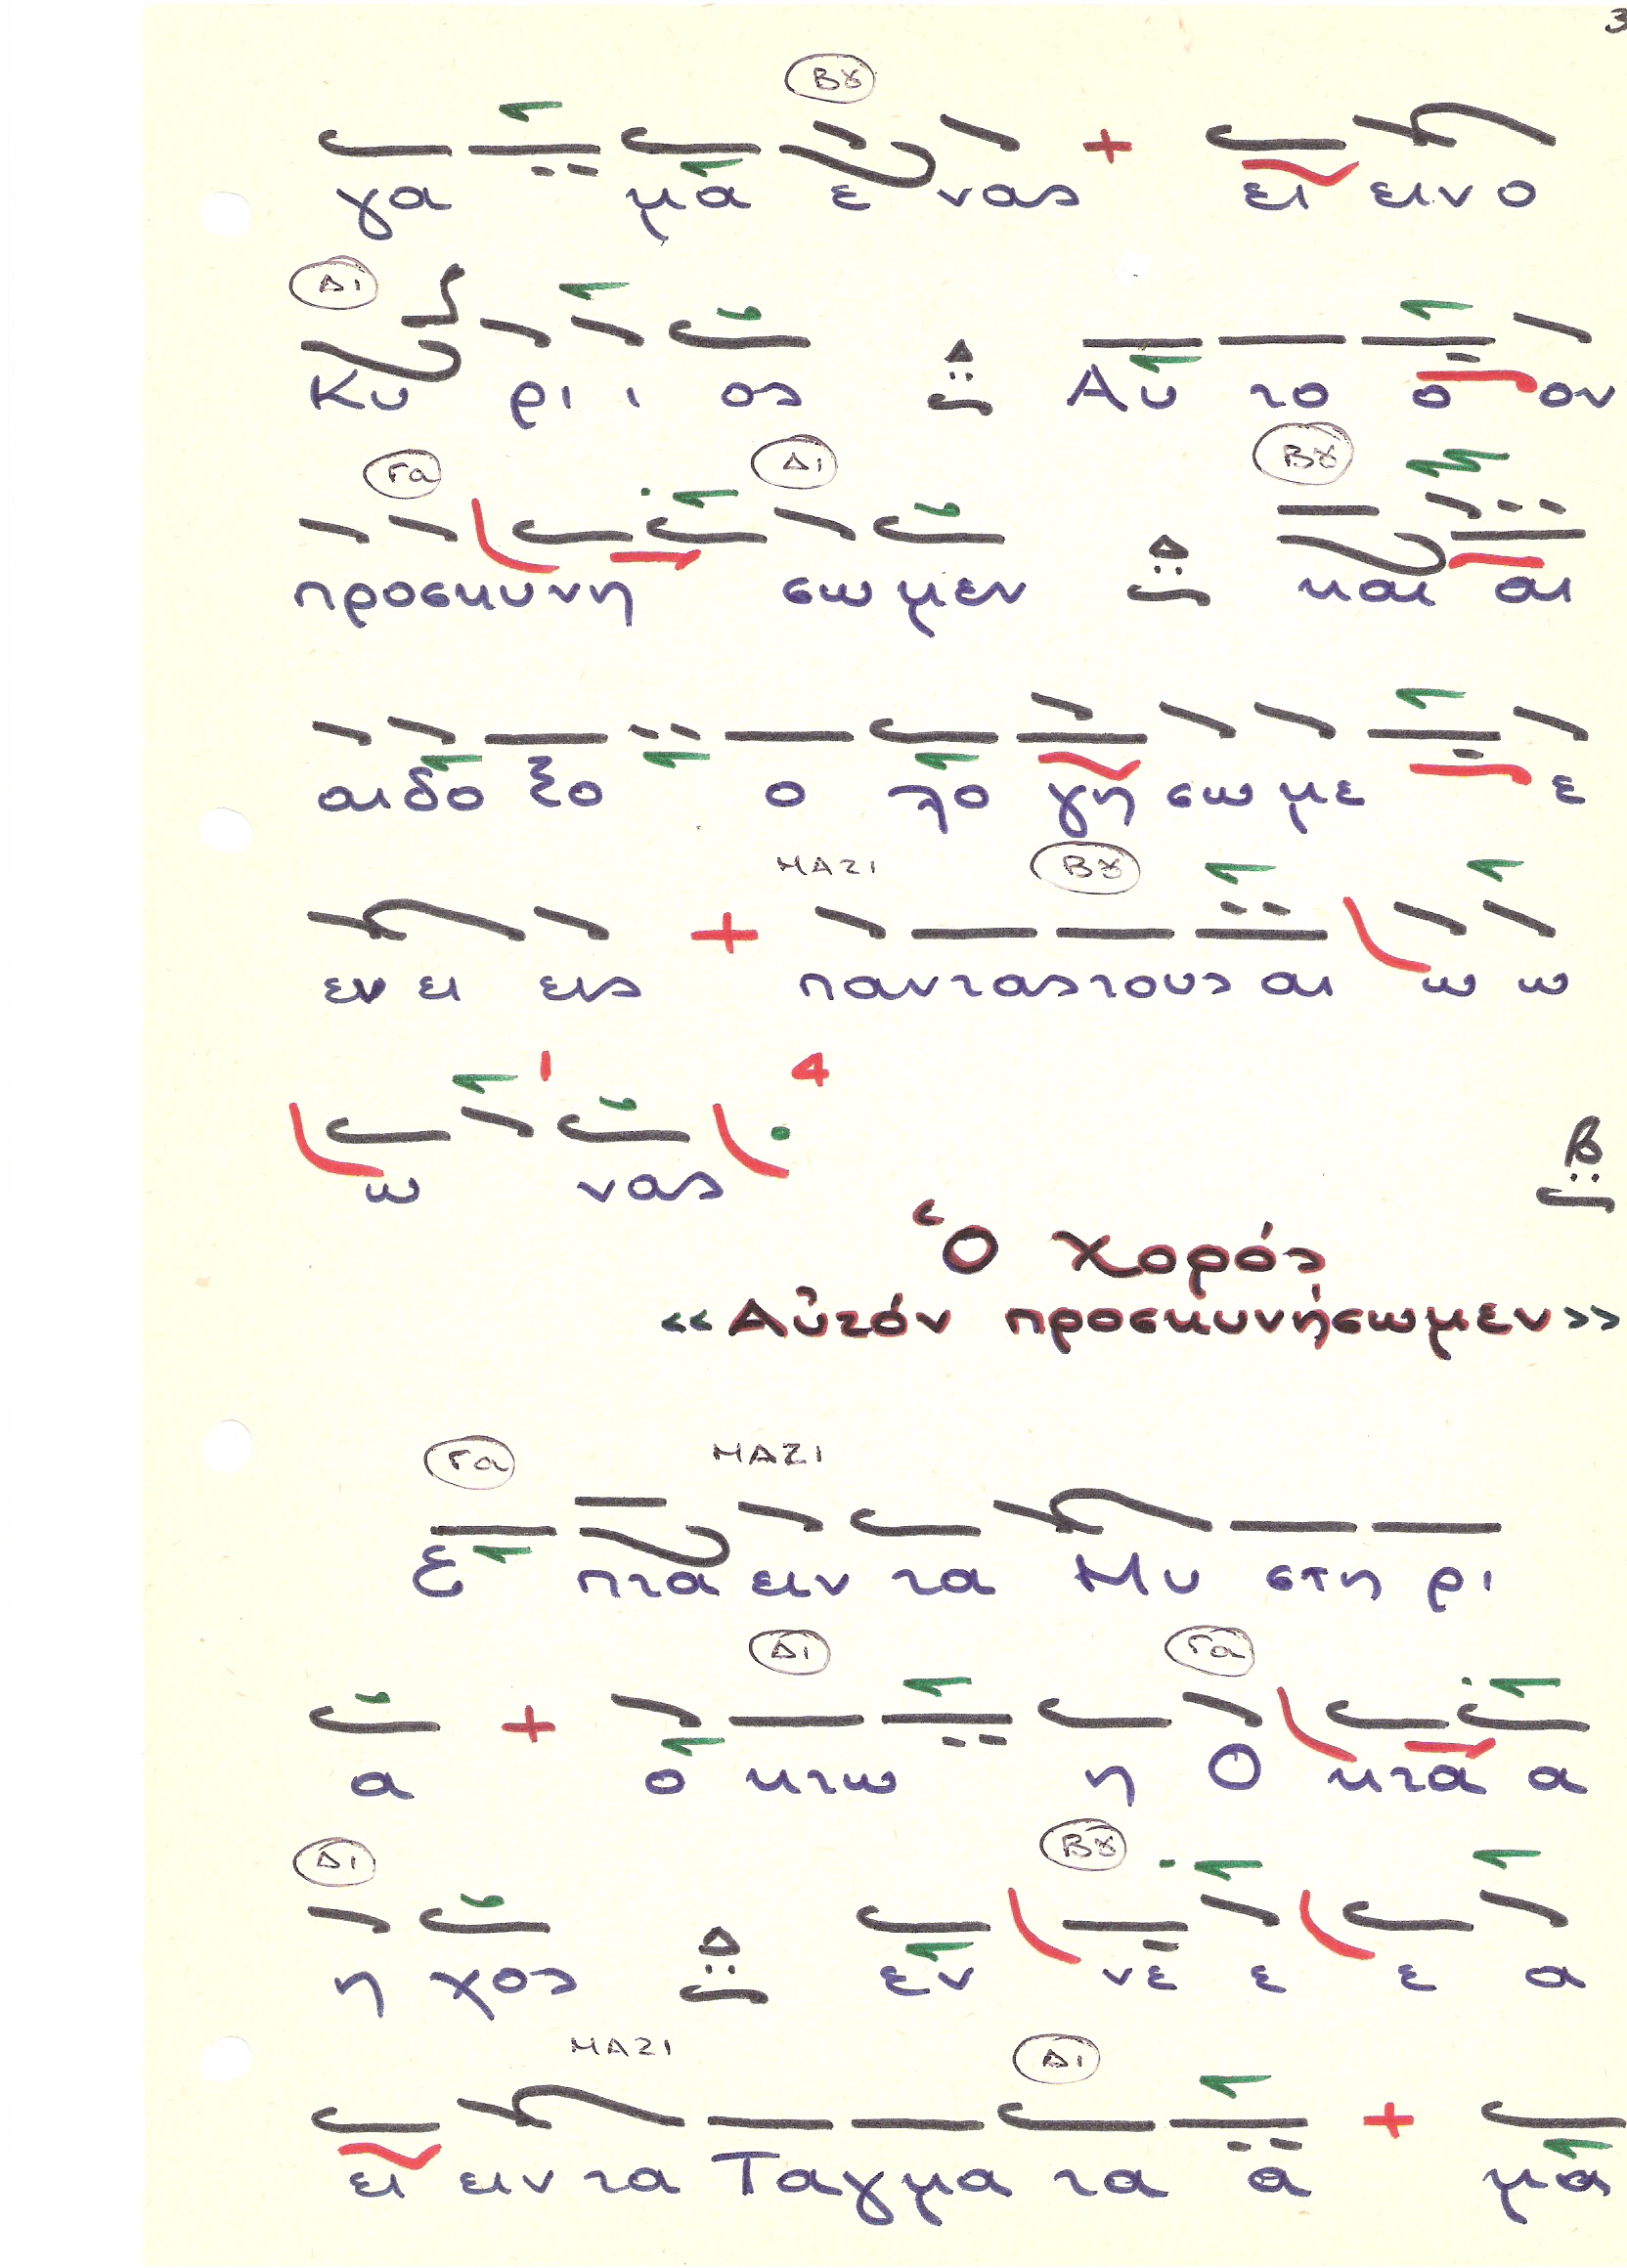 3
Βȣ
γα μα ε νας ει εινο
Δι
Κυ ρι ι ος Δ Αυ το ο ον
Γα Δι Βȣ
προσκυνη σωμεν Δ και αι
αιδο ξο ο λο γη σωμε ε
ΜΑΖΙ Βȣ
εν ει εις πανταςτους αι ω ω
1 4
ω νας β
Ὁ χορός
«Αὐτόν προσκυνήσωμεν»
Γα ΜΑΖΙ
Ε πτα ειν τα Μυ στη ρι
Δι Γα
α ο κτω η Ο κτα α
Δι Βȣ
η χος Δ εν νε ε ε α
ΜΑΖΙ Δι
ει ειν τα Ταγμα τα α μα